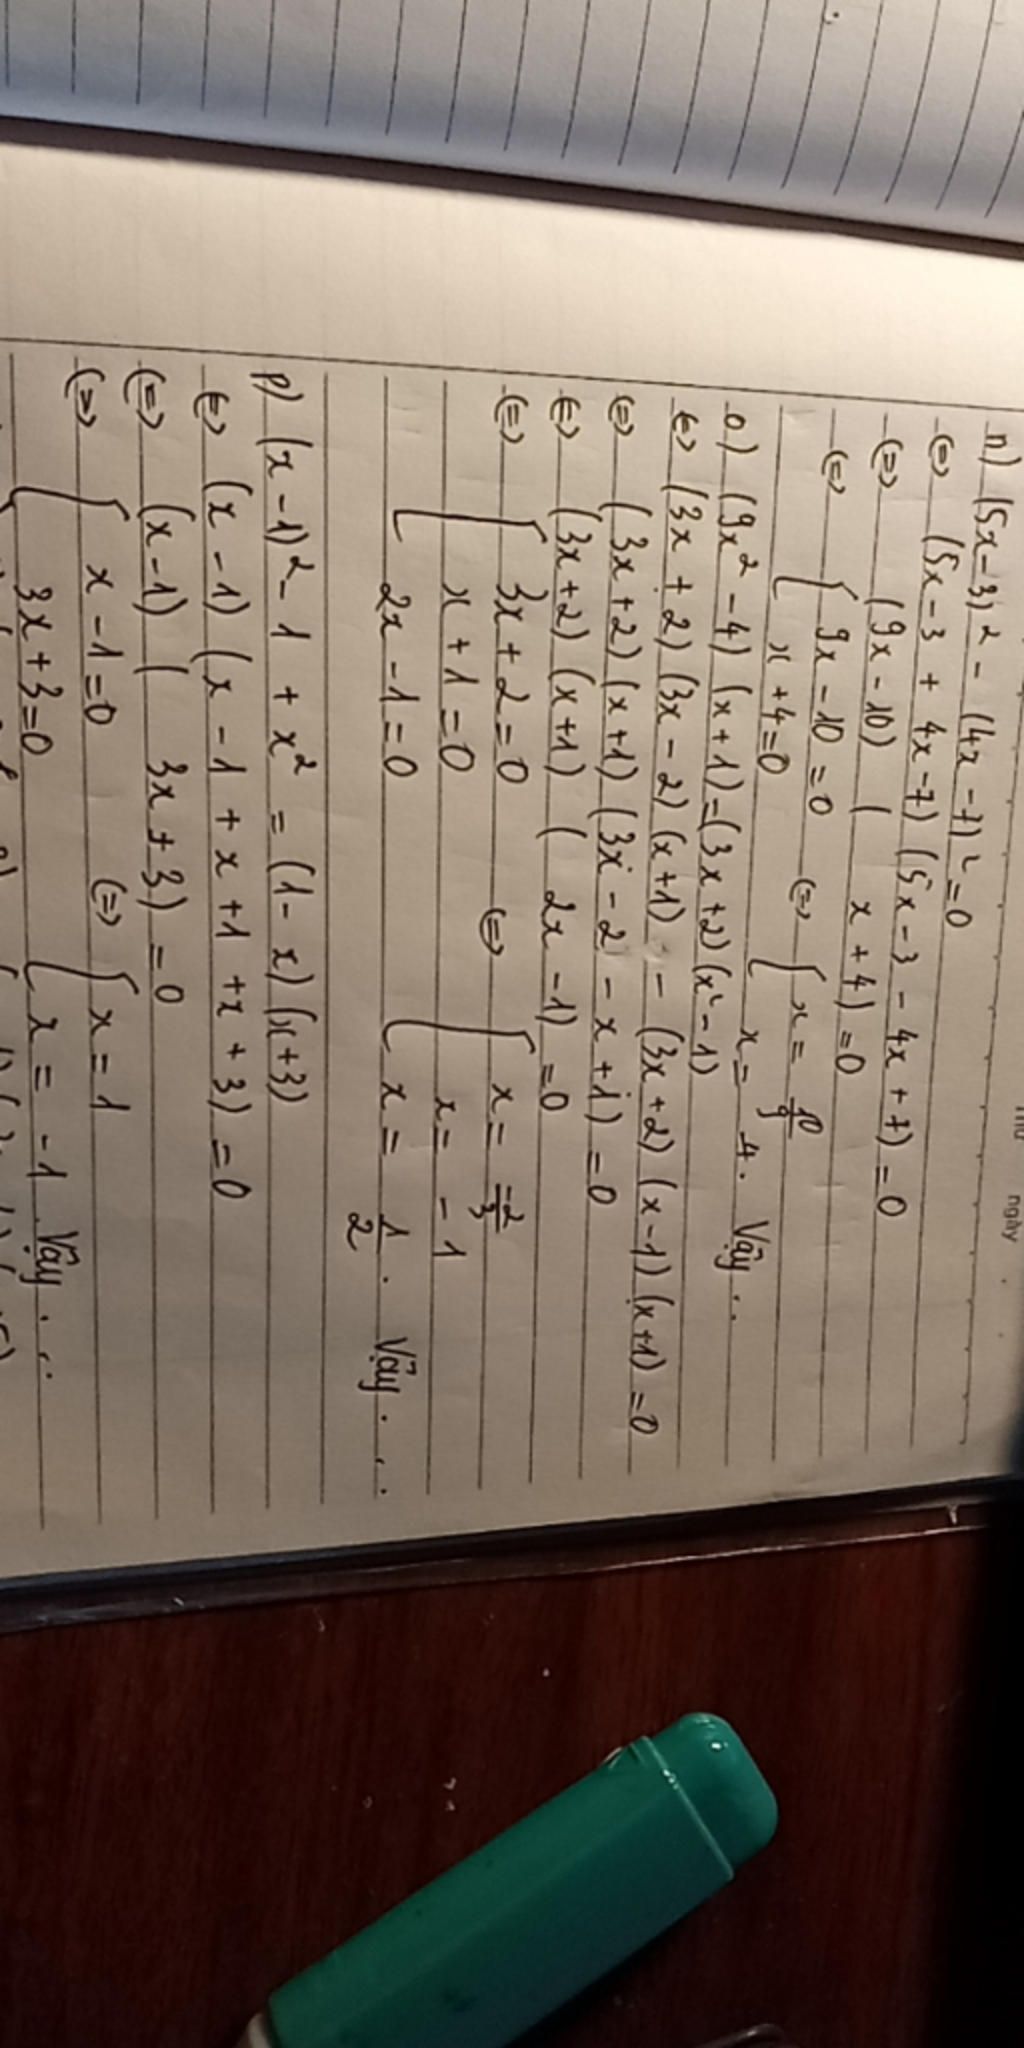 ngày
n) (5x-3)² - (4x-7)² = 0
(=) (5x-3 + 4x-7) (5x-3 - 4x+7) = 0
(=) (9x-10) ( x+4) = 0
(=) [ 9x-10 = 0 (=) [ x = 10/9
x+4=0 x = -4. Vậy ..
o) (9x²-4) (x+1) = (3x+2) (x²-1)
(=) (3x+2) (3x-2) (x+1) - (3x+2) (x-1) (x+1) = 0
(=) (3x+2) (x+1) (3x-2 - x+1) = 0
(=) (3x+2) (x+1) ( 2x-1) = 0
(=) [ 3x+2=0 (=) [ x = -2/3
x+1=0 x = -1
2x-1=0 x = 1/2 . Vậy ...
p) (x-1)² - 1 + x² = (1-x) (x+3)
(=) (x-1) (x-1 + x+1 + x+3) = 0
(=) (x-1) ( 3x+3) = 0
(=) [ x-1=0 (=) [ x = 1
3x+3=0 x = -1 . Vậy ...